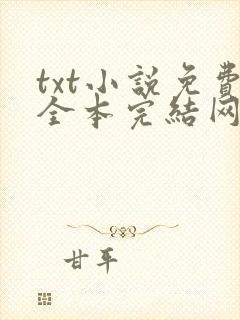 txt小説免費
全本完結网
甘平